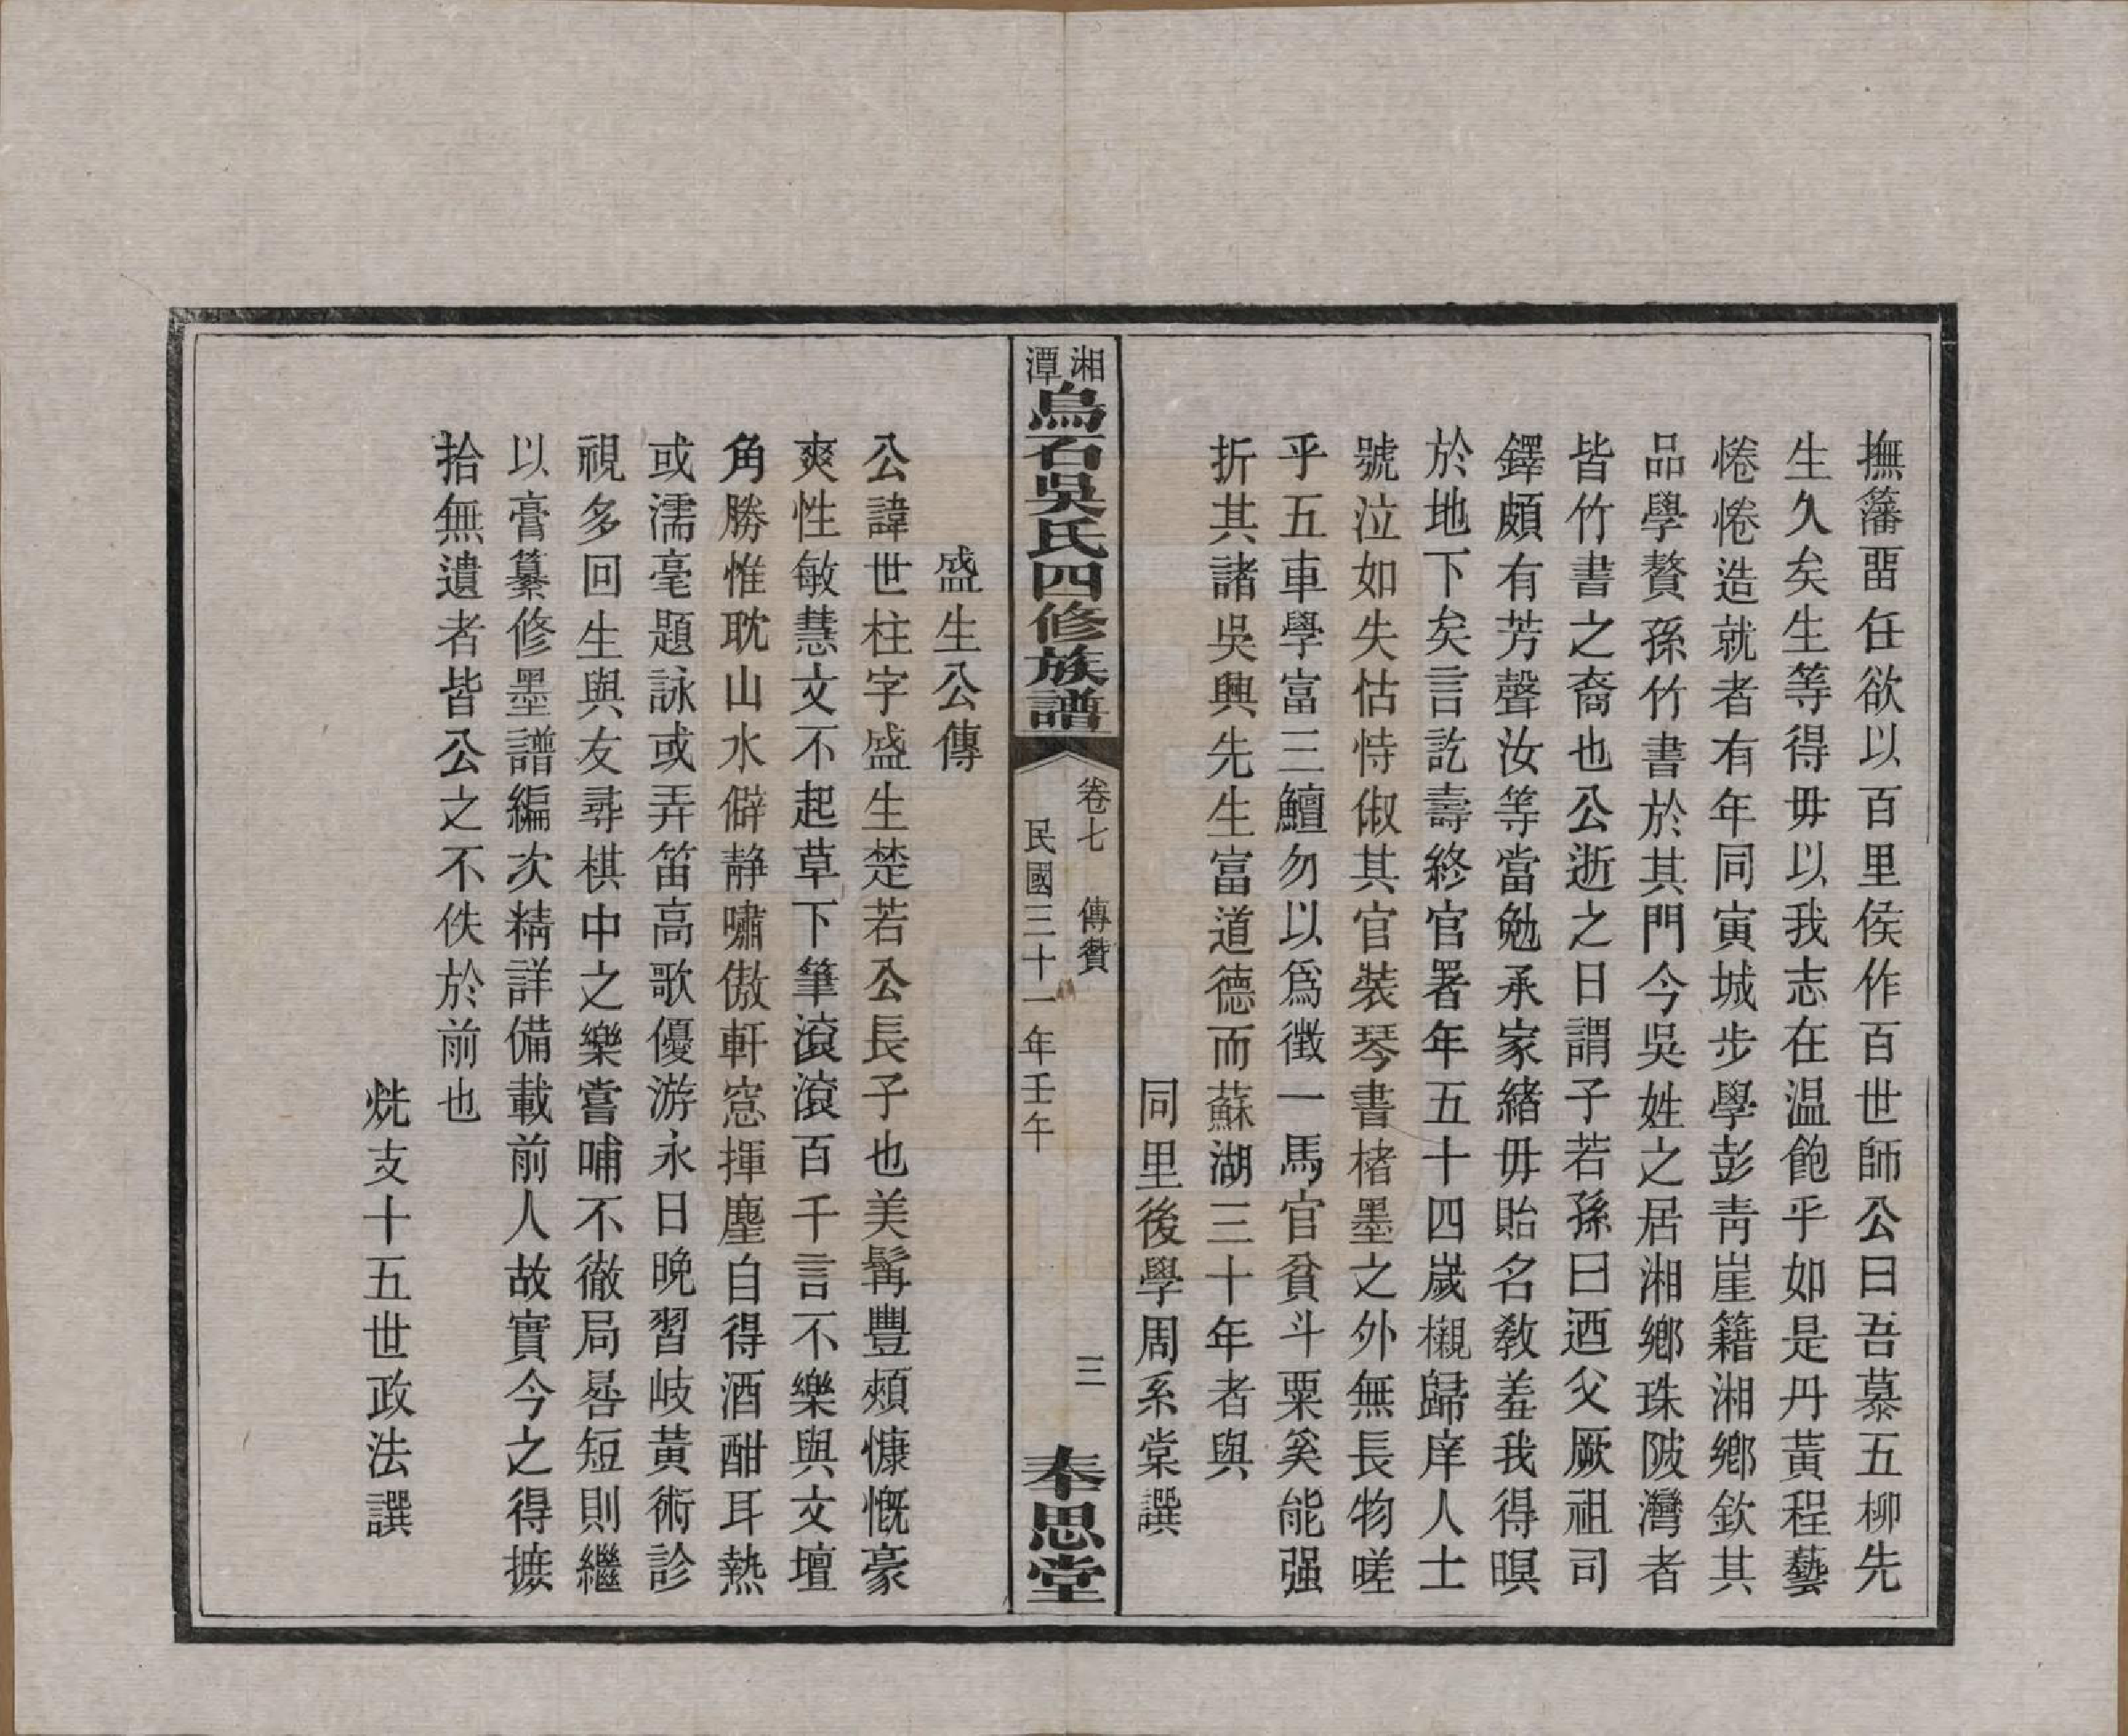 撫藩畱任欲以百里侯作百世師公曰吾慕五柳先
生久矣生等得毋以我志在温飽乎如是丹黃程藝
惓惓造就者有年同寅城步學彭青崖籍湘鄉欽其
品學贅孫竹書於其門今吳姓之居湘鄉珠陂灣者
皆竹書之裔也公逝之日謂子若孫曰迺父厥祖司
鐸頗有芳聲汝等當勉承家緒毋貽名敎羞我得瞑
於地下矣言訖壽終官署年五十四歲櫬歸庠人士
號泣如失怙恃俶其官裝琴書楮墨之外無長物嗟
乎五車學富三鱣勿以爲徵一馬官貧斗粟奚能强
折其諸吳興先生富道德而蘇湖三十年者與
同里後學周系棠譔
湘潭烏石吳氏四修族譜
卷七 傳贊
民國三十一年壬午
三
奉思堂
盛生公傳
公諱世柱字盛生楚若公長子也美髯豐頰慷慨豪
爽性敏慧文不起草下筆滾滾百千言不樂與文壇
角勝惟耽山水僻靜嘯傲軒窓揮麈自得酒酣耳熱
或濡毫題詠或弄笛高歌優游永日晚習岐黃術診
視多回生與友尋棋中之樂嘗哺不徹局晷短則繼
以膏纂修墨譜編次精詳備載前人故實今之得摭
拾無遺者皆公之不佚於前也
烍支十五世政法譔